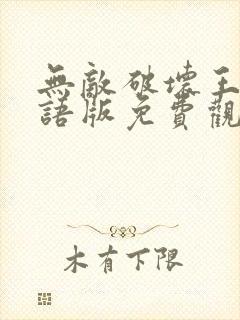 無敵破壞王
語版免費觀
木有下限